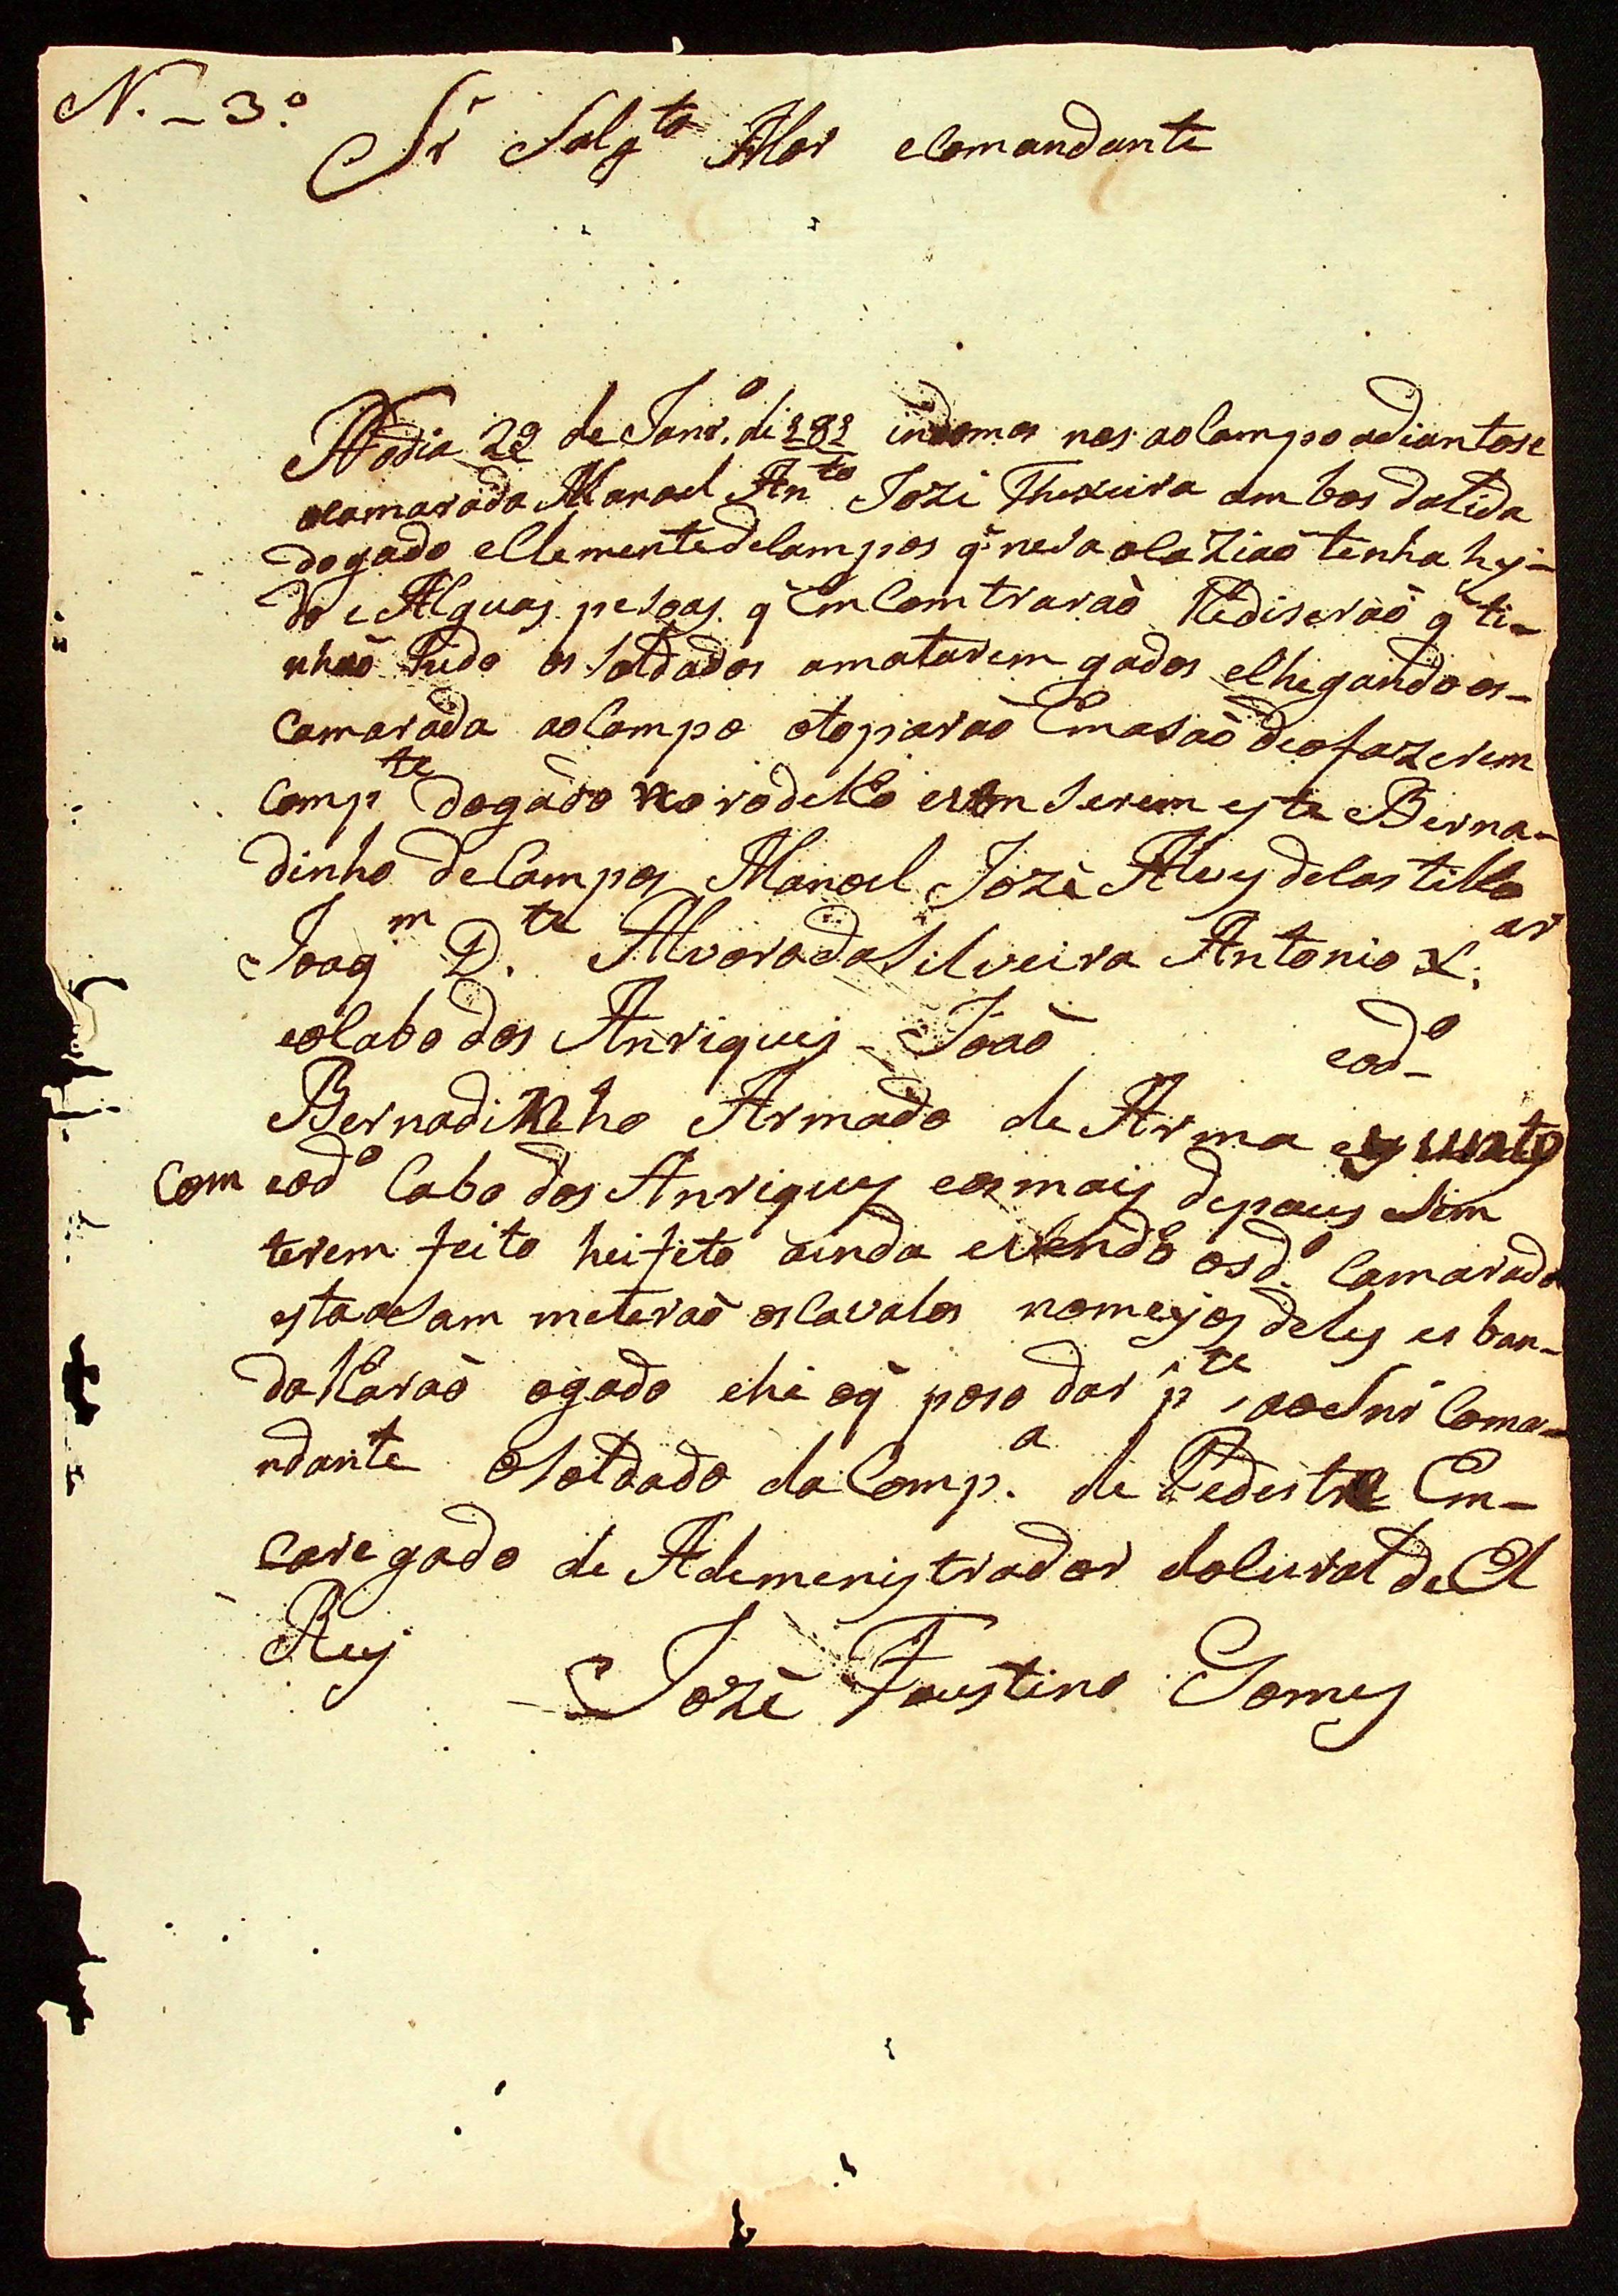 N. - 3.º
Sr Salgto Mor eComandante
Nodia 29 de Janr.º di 181 indomos nos aoCampo adiantose
oCamarada Manoel Anto Jozé Theixeira ambos dalida
dogado eClementedeCampos q̃ nesa oCaziaõ tenha hy-
do e Alguas pesoas q̃ EmComtraraõ lhediseraõ q̃ ti-
nhaõ hido os Soldados amatarem gados eChegando os-
Camarada aoCampo otoparaõ Emasaõ deofazerem
Compte dogado no rodeCo Serem este Berna-
dinho deCampos Manoel Jozè Alvs deCastilho
Joaqm D.te Alvaro daSilveira Antonio X.ar
eoCabo dos Anriques Joaõ eodº
Bernadinho Armado de Arma ejunto
Com eodº Cabo dos Anriques eosmais depaus Sem
terem feito heifeito ainda osd.º Camarada
meteraõ osCavalos nomeyos deles esban-
dalharaõ ogado ehe oq̃ poso dar pte aoSnr Coma-
ndante OSoldado da Comp.a de Pedestre En-
Caregado de Ademenistrador doCural de El
Rey
Jozè Faustino Gomes